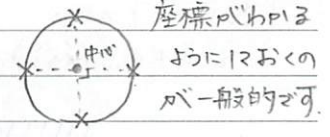 座標がわかる
中心
ようにしておくの
が一般的です.